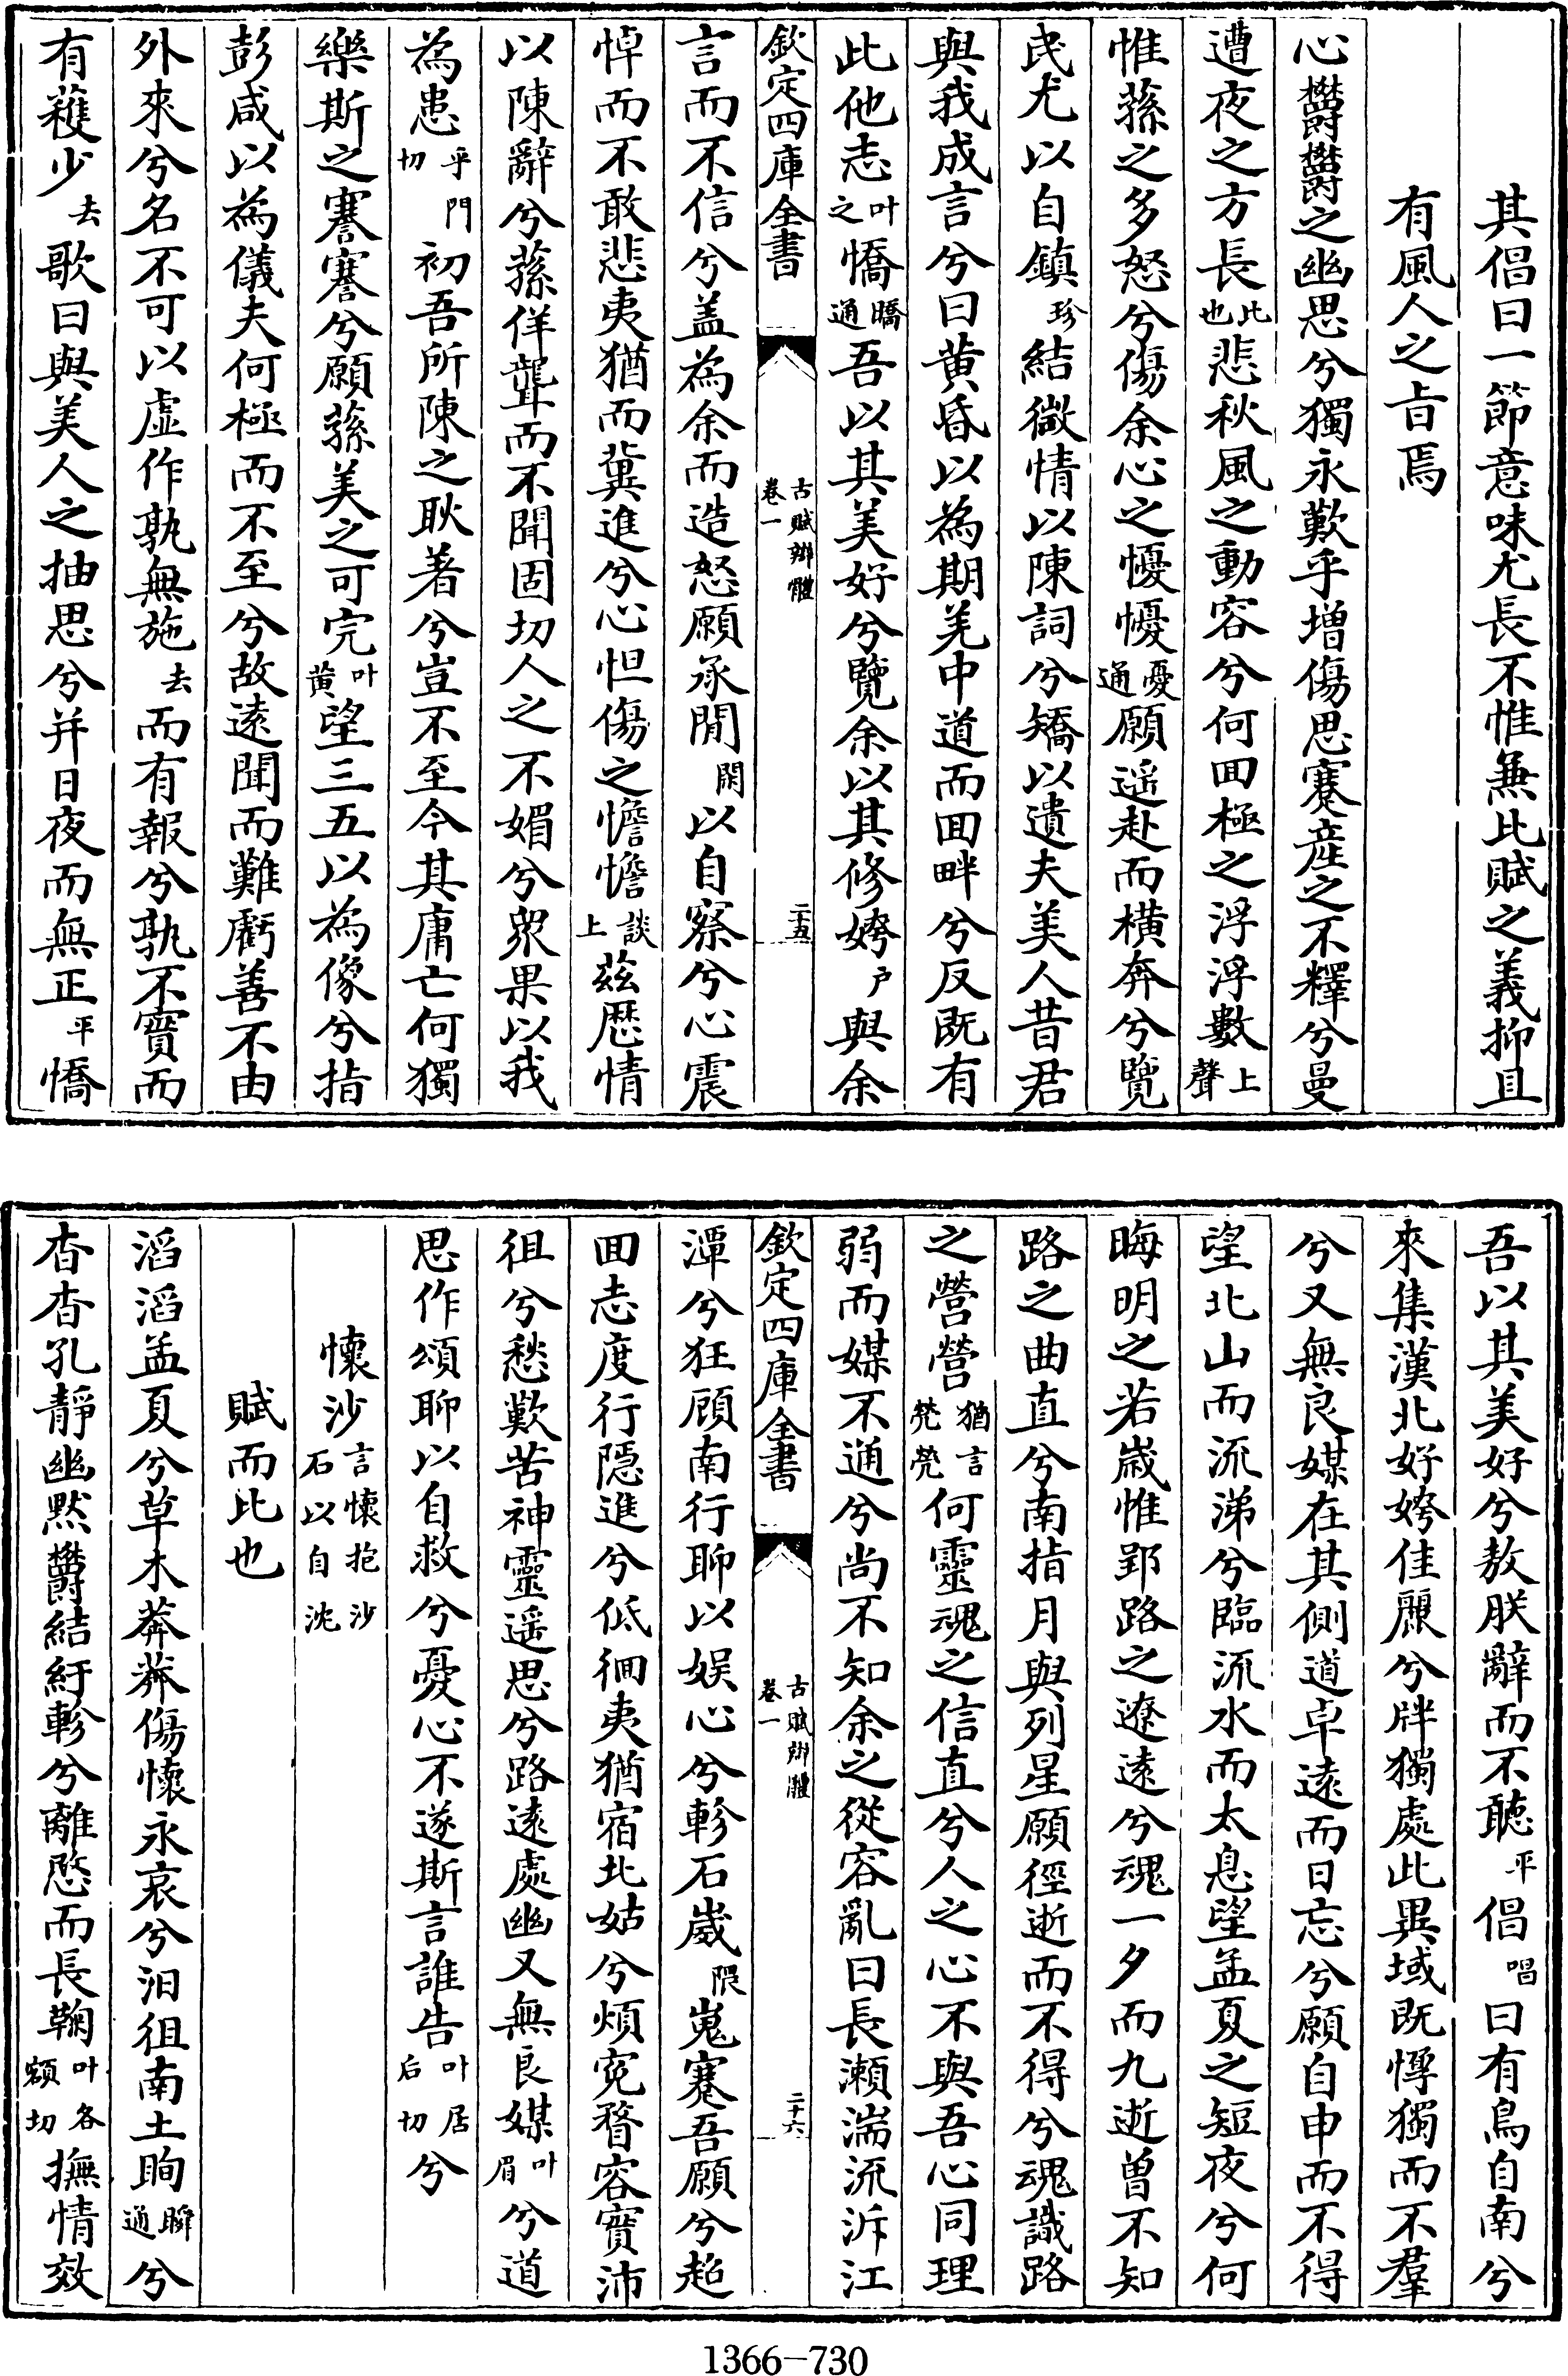 其倡曰一節意味尤長不惟無比賦之義抑且
有風人之旨焉
心鬱鬱之幽思兮獨永歎乎增傷思蹇産之不釋兮曼
遭夜之方長此也悲秋風之動容兮何囬極之浮浮數上聲
惟蓀之多怒兮傷余心之懮懮憂通願遥赴而橫奔兮覽
民尤以自鎮珍結微情以陳詞兮矯以遺夫美人昔君
與我成言兮曰黄昏以為期羌中道而囬畔兮反既有
此他志叶之憍驕通吾以其美好兮覽余以其修姱户與余
欽定四庫全書
古賦辨體
卷一
二十五
言而不信兮盖為余而造怒願承閒閑以自察兮心震
悼而不敢悲夷猶而冀進兮心怛傷之憺憺談上茲歴情
以陳辭兮蓀佯聾而不聞固切人之不媚兮衆果以我
為患乎門切初吾所陳之耿著兮豈不至今其庸亡何獨
樂斯之謇謇兮願蓀美之可完叶黄望三五以為像兮指
彭咸以為儀夫何極而不至兮故遠聞而難虧善不由
外來兮名不可以虚作孰無施去而有報兮孰不實而
有穫少去歌曰與美人之抽思兮并日夜而無正平憍
吾以其美好兮敖朕辭而不聽平倡唱曰有鳥自南兮
來集漢北好姱佳麗兮牉獨處此異域既惸獨而不羣
兮又無良媒在其側道卓遠而日忘兮願自申而不得
望北山而流涕兮臨流水而太息望孟夏之短夜兮何
晦明之若歲惟郢路之遼遠兮魂一夕而九逝曾不知
路之曲直兮南指月與列星願徑逝而不得兮魂識路
之營營猶言煢煢何靈魂之信直兮人之心不與吾心同理
弱而媒不通兮尚不知余之從容亂曰長瀬湍流泝江
欽定四庫全書
古賦辨體
卷一
二十六
潭兮狂顧南行聊以娱心兮軫石崴隈嵬蹇吾願兮超
囬志度行隱進兮低徊夷猶宿北姑兮煩寃瞀容實沛
徂兮愁歎苦神靈遥思兮路遠處幽又無良媒叶眉兮道
思作頌聊以自救兮憂心不遂斯言誰告叶居后切兮
懷沙言懷抱沙石以自沈
賦而比也
滔滔孟夏兮草木莽莽傷懷永哀兮汩徂南土眴瞬通兮
杳杳孔靜幽黙鬱結紆軫兮離愍而長鞠叶各額切撫情效
1366-730